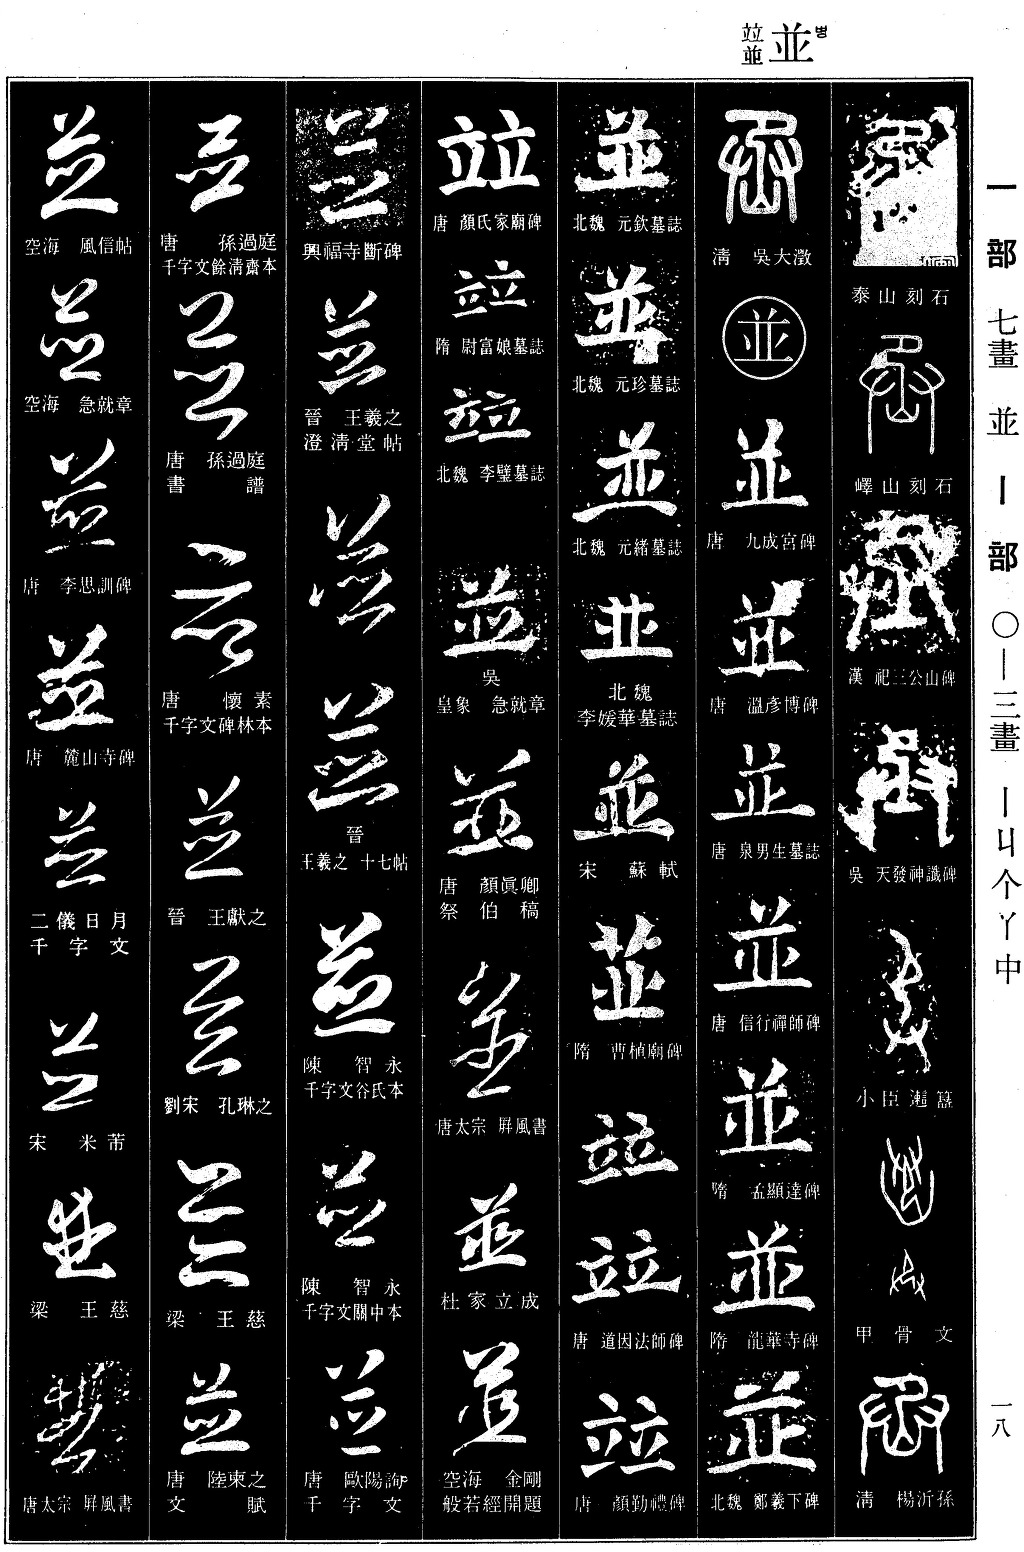 並 병
竝
並
一部 七畫 並 丨部 〇—三畫 丨丩个丫中
一八
泰山刻石
嶧山刻石
漢 祀三公山碑
吳 天發神讖碑
小臣𧽙簋
甲骨文
清 楊沂孫
清 吳大澂
並
唐 九成宮碑
唐 溫彥博碑
唐 泉男生墓誌
唐 信行禪師碑
隋 孟顯達碑
隋 龍華寺碑
北魏 鄭羲下碑
北魏 元欽墓誌
北魏 元珍墓誌
北魏 元緒墓誌
北魏
李媛華墓誌
宋 蘇軾
隋 曹植廟碑
唐 道因法師碑
唐 顏勤禮碑
唐 顏氏家廟碑
隋 尉富娘墓誌
北魏 李璧墓誌
吳
皇象 急就章
唐 顏眞卿
祭伯稿
唐太宗 屏風書
杜家立成
空海 金剛
般若經開題
興福寺斷碑
晉 王羲之
澄清堂帖
晉
王羲之 十七帖
陳 智永
千字文谷氏本
陳 智永
千字文關中本
唐 歐陽詢
千字文
唐 孫過庭
千字文餘淸齋本
唐 孫過庭
書譜
唐 懷素
千字文碑林本
晉 王獻之
劉宋 孔琳之
梁 王慈
唐 陸柬之
文賦
空海 風信帖
空海 急就章
唐 李思訓碑
唐 麓山寺碑
二儀日月
千字文
宋 米芾
梁 王慈
唐太宗 屏風書